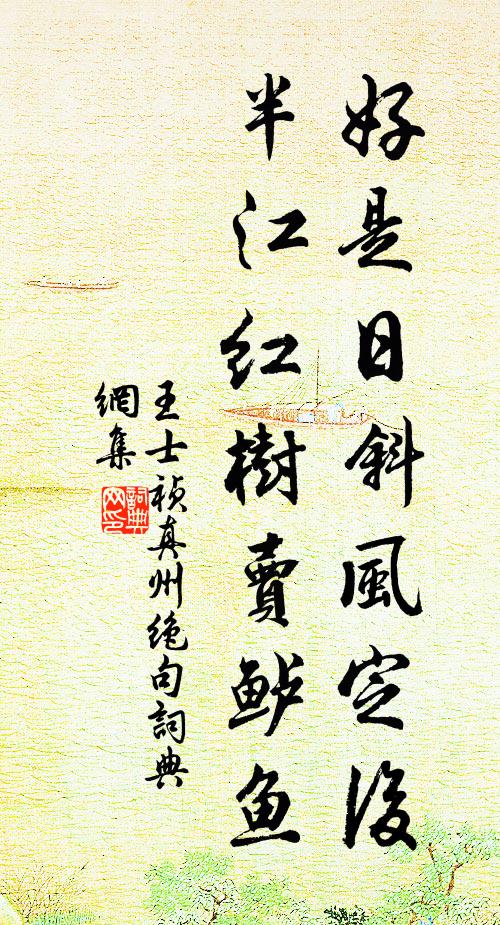 好是日斜風定後
半江红樹賣鲈鱼
王士祯真州绝句詞典
網集
詞典
网印